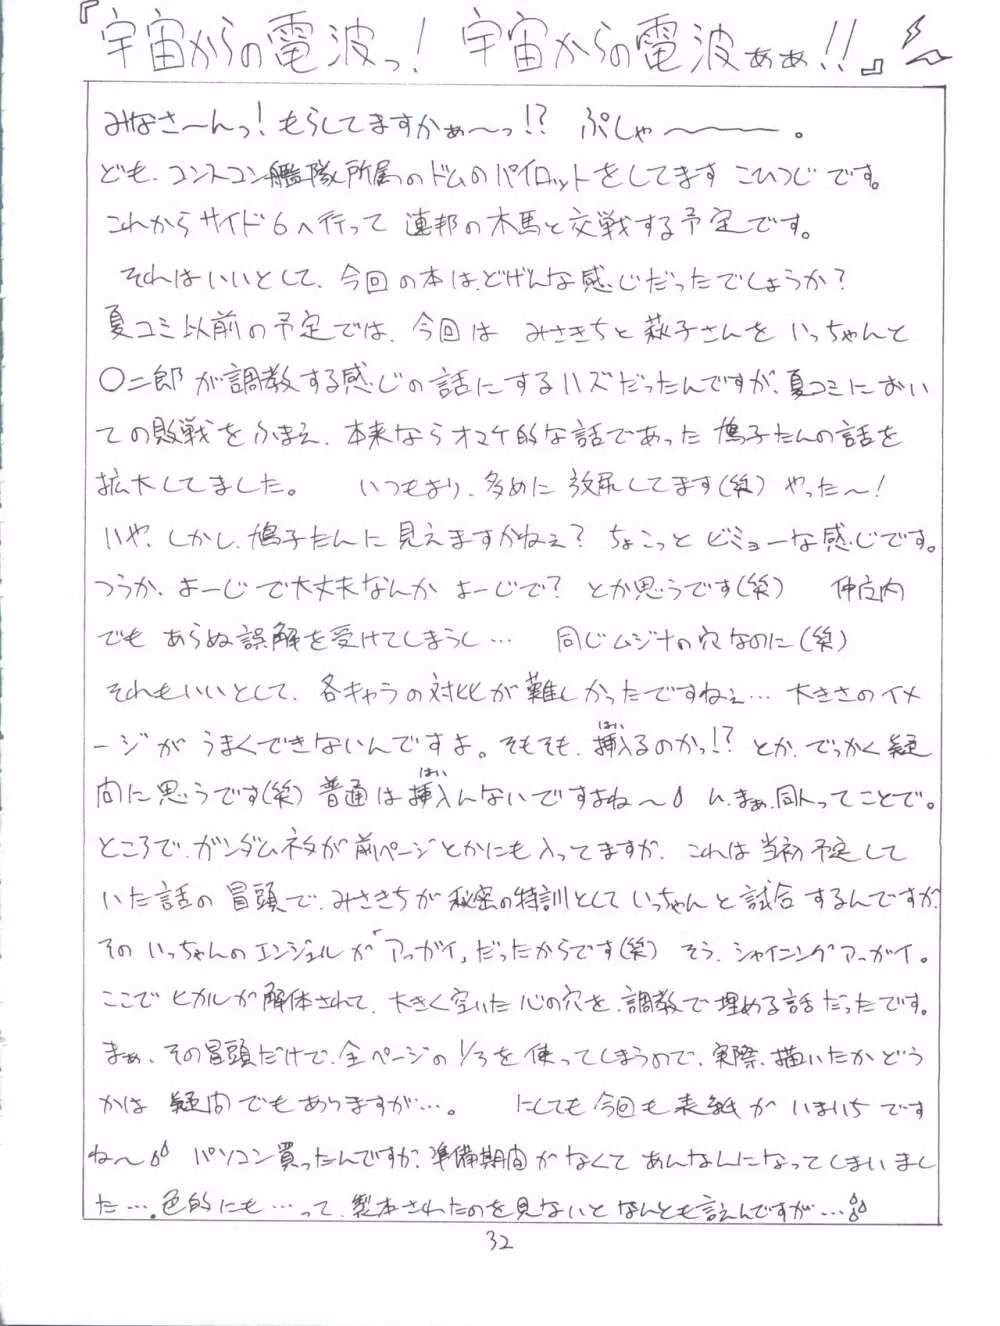 『宇宙からの電波っ! 宇宙からの電波ぁぁ!!』
みなさ〜んっ! もらしてますかぁ〜っ!? ぷしゃ〜〜〜。
ども、コンスコン艦隊所属のドムのパイロットをしてます こひつじです。
これからサイド6へ行って 連邦の木馬と交戦する予定です。
それはいいとして、今回の本は、どげんな感じだったでしょうか?
夏コミ以前の予定では、今回は みさきちと萩子さんを いっちゃんと
○二郎が調教する感じの話にするハズだったんですが、夏コミにおい
ての敗戦をふまえ、本来ならオマケ的な話であった 鳩子たんの話を
拡大してました。 いつもより、多めに 放尿してます(笑) やった〜!
いや、しかし、鳩子たんに見えますかねぇ? ちょこっと ビミョーな感じです。
つうか、よーじで大丈夫なんか よーじで? とか思うです(笑) 仲間内
でも あらぬ誤解を受けてしまうし… 同じムジナの穴なのに(笑)
それもいいとして、各キャラの対比が難しかったですねぇ… 大きさのイメ
ージが うまくできないんですよ。そもそも、挿入るのかっ!? とか、でっかく疑
問に思うです(笑) 普通は挿入んないですよね〜 ん、まぁ、同人ってことで。
ところで、ガンダムネタが前ページとかにも入ってますが、これは当初予定して
いた話の冒頭で、みさきちが秘密の特訓としていっちゃんと試合するんですが、
その いっちゃんのエンジェルが「アッガイ」だったからです(笑) そう、シャイニングアッガイ。
ここで ヒカルが解体されて、大きく空いた心の穴を、調教で埋める話だったです。
まぁ、その冒頭だけで、全ページの1/3を使ってしまうので、実際、描いたかどう
かは 疑問でもありますが…。 にしても今回も表紙がいまいちです
ね〜 パソコン買ったんですが、準備期間がなくて あんなんになってしまいまし
た…。色的にも…って、製本されたのを見ないと なんとも言えんですが…
32